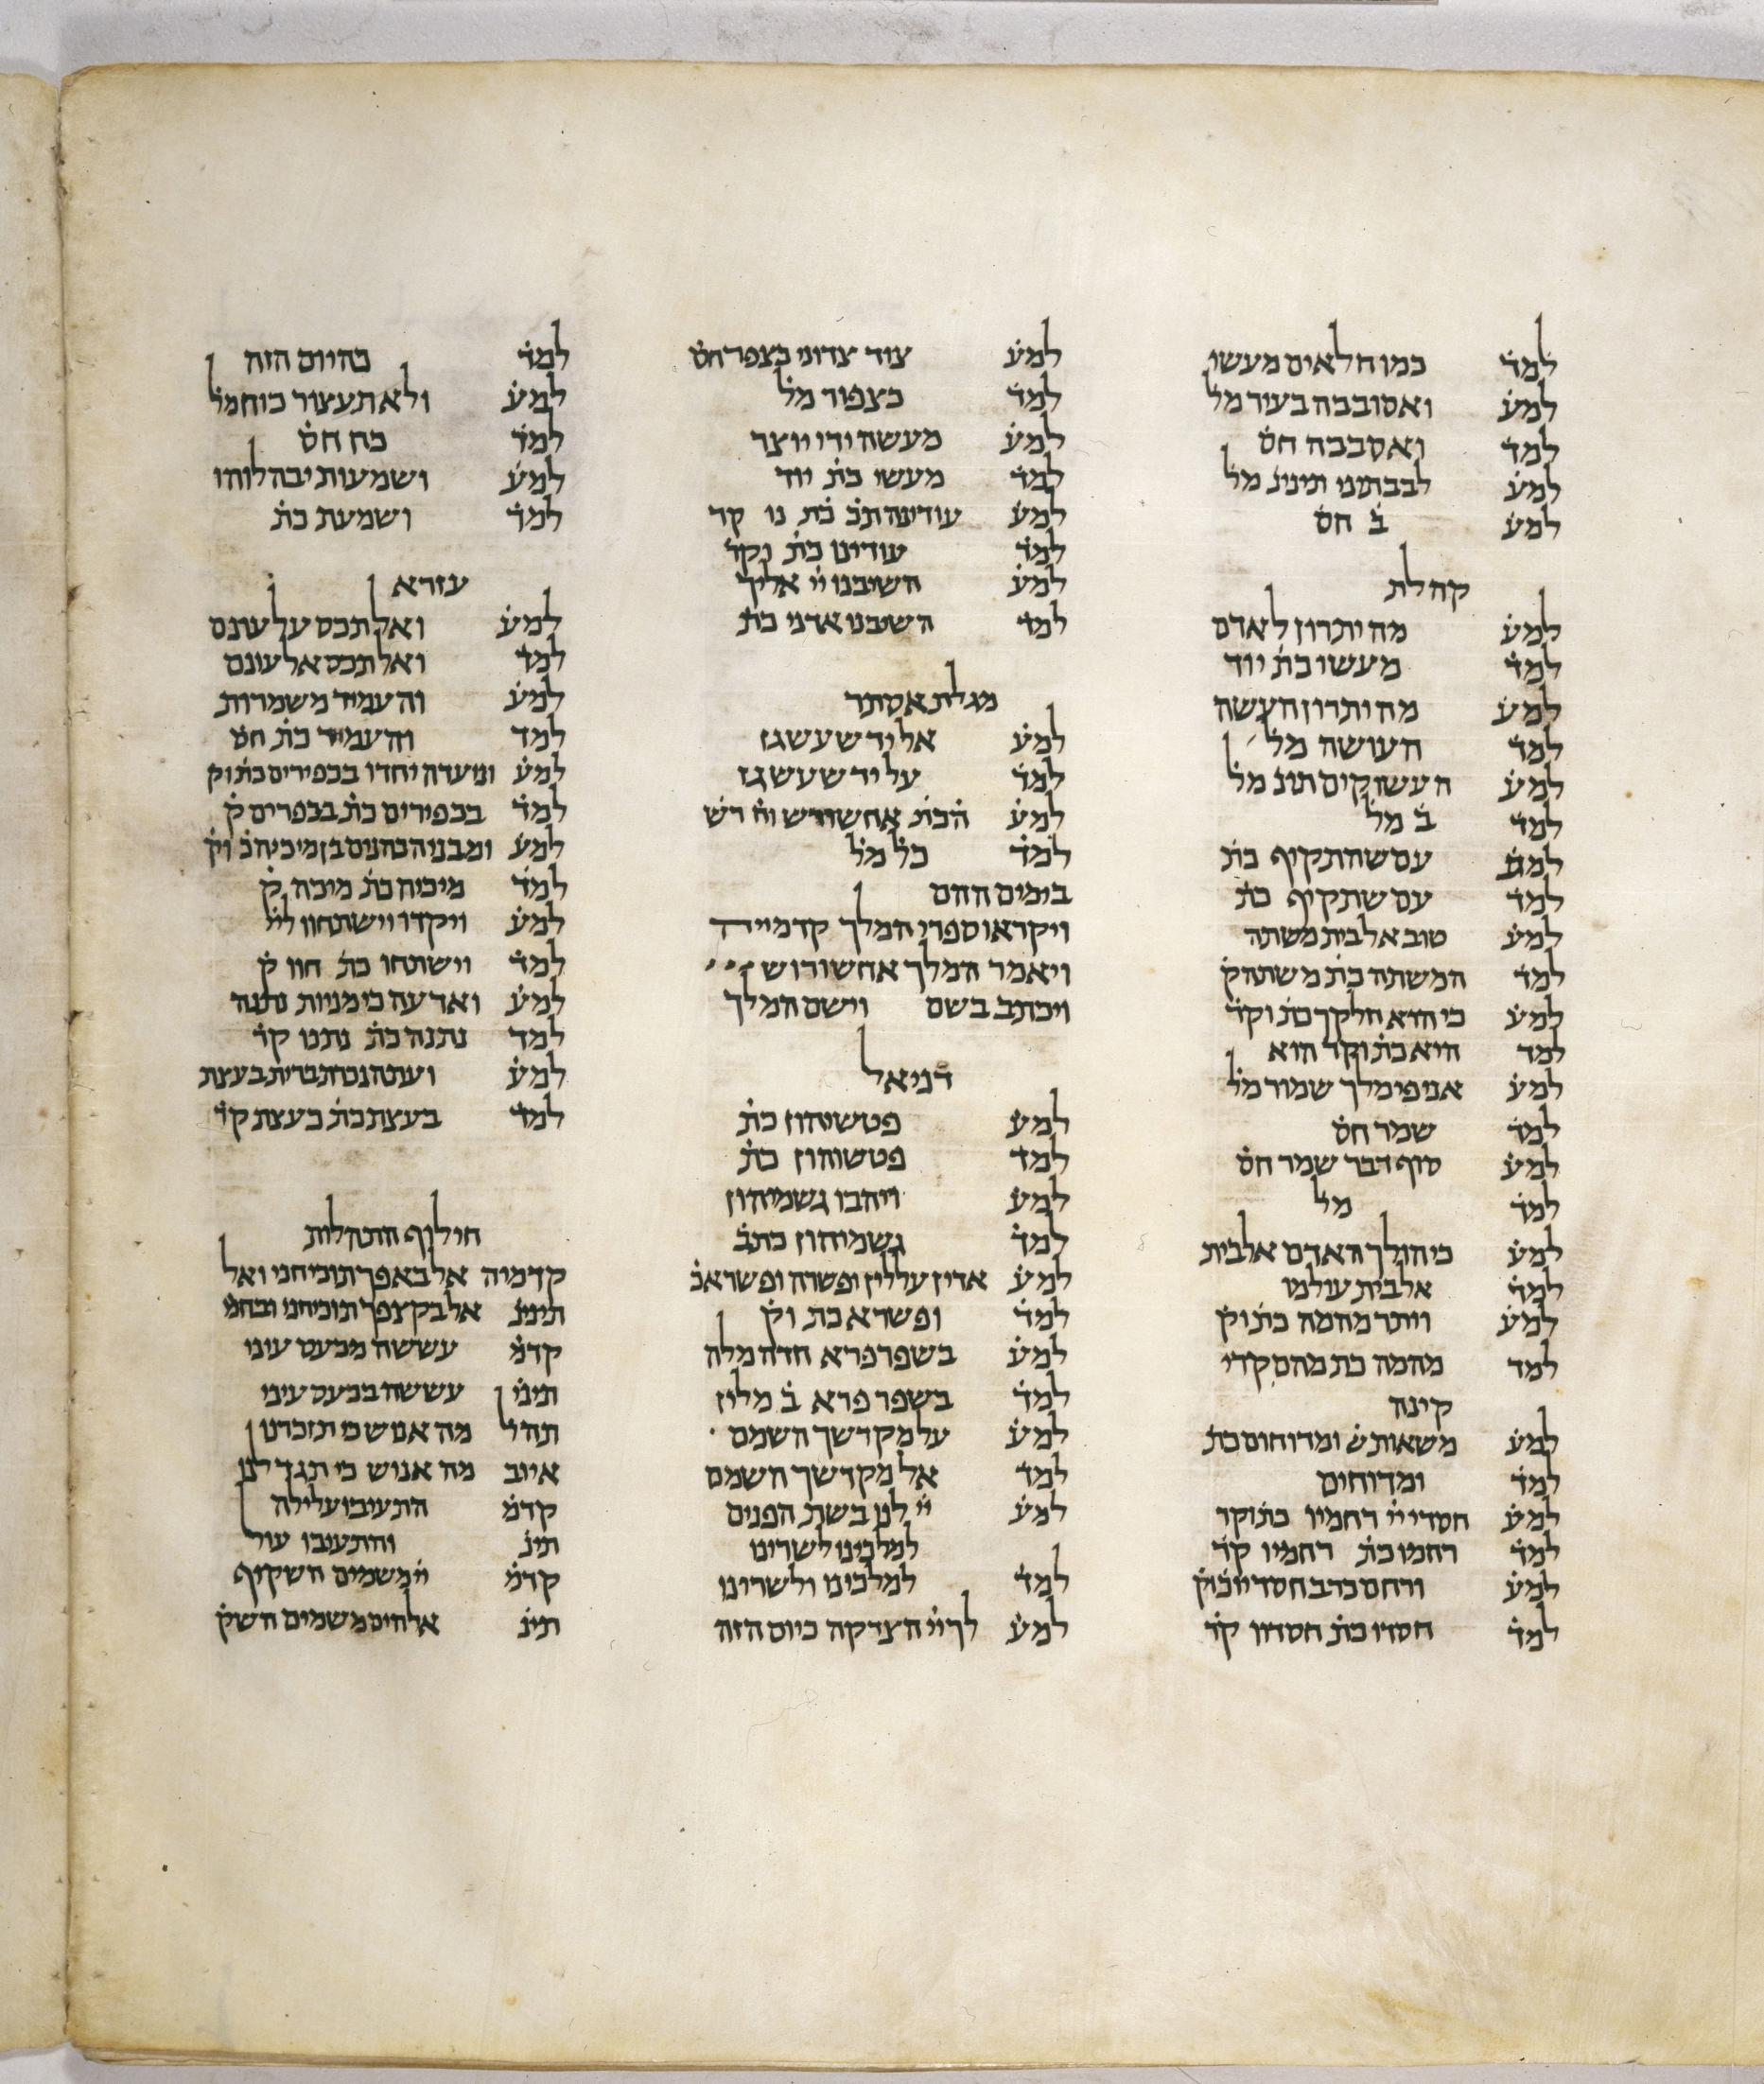 למד כמו חלאים מעשי
למע ואסובבה בעיר מל
למד ואסבבה חס
למע לבבתיני תיניג מל
למע ב חס
קהלת
למע מה יתרון לאדם
למד מעשו כת יוד
למע מה יתרון העשה
למד העושה מל
למע העשוקים תינ מל
למד ב מל
למע עם שהתקיף כת
למד עם שתקיף כת
למע טוב אל בית משתה
למד המשתה כת משתה ק
למע כי הוא חלקך כת וקר
למד היא כת וקר הוא
למע אני פי מלך שמור מל
למד שמר חס
למע סוף דבר שמר חס
למד מל
למע כי הולך האדם אל בית
למד אל בית עולמו
למע ויתר מהמה כת וק
למד מהמה כת מהם קרי
קינה
למע משאות ש ומדוחים כת
למד ומדוחים
למע חסדי יי רחמיו כת וקר
למד רחמו כת רחמיו קר
למע ורחם כרב חסדיו כ וק
למד חסדו כת חסדיו קר
למע עוד צדוני כצפר חס
למד כצפור מל
למע מעשה ידי יוצר
למד מעשי כת יוד
למע עודינה תכ כת נו קר
למד עודינו כת וקר
למע השיבנו יי אליך
למד השבנו אדני כת
מגלת אסתר
למע אל יד שעשגז
למד על יד שעשגז
למע הכת אחשורש וח רש
למד כל מל
בימים ההם
ויקראו ספרי המלך קדמייה
ויאמר המלך אחשורוש
ויכתב בשם וישם המלך
דניאל
למע פטשיהון כת
למד פטשוהון כת
למע ויהבו גשמיהון
למד גשמיהון כתב
למע אדין עללין ופשרה ופשרא כ
למד ופשרא כת וק
למע בשפרפרא חדה מלה
למד בשפר פרא ב מלין
למע על מקדשך השמם
למד אל מקדשך השמם
למע יי לנו בשת הפנים
למלכינו לשרינו
למד למלכינו ולשרינו
למע לך יי הצדקה כיום הזה
למד כהיום הזה
למע ולא תעצור כוח מל
למד כח חס
למע ושמעות יבהלוהו
למד ושמעת כת
עזרא
למע ואל תכס על עונם
למד ואל תכס אל עונם
למע והעמיד משמרות
למד והעמיד כת חס
למע ונועדה יחדו בכפירים כת וק
למד בכפירים כת בכפרים ק
למע ומבני הכהנים בן מיכיה כ וק
למד מיכיה כת מיכה ק
למע ויקדו וישתחוו ליי
למד וישתחו כת חוו ק
למע ואדעה כי מניות נתנה
למד נתנה כת נתנו קר
למע ועתה נכרת ברית בעצת
למד בעצת כת כעצת קר
חילוף התהלות
קדמיה אל באפך תוכיחני ואל
תינינ אל בקצפך תוכיחני ובחמ
קדמ עששה מכעס עיני
תינינ עששה בכעס עיני
תהל מה אנוש כי תזכרנו
איוב מה אנוש כי תגדלנו
קדמ התעיבו עלילה
תינ והתעיבו עול
קדמ יי משמים השקיף
תינ אלהים משמים השק